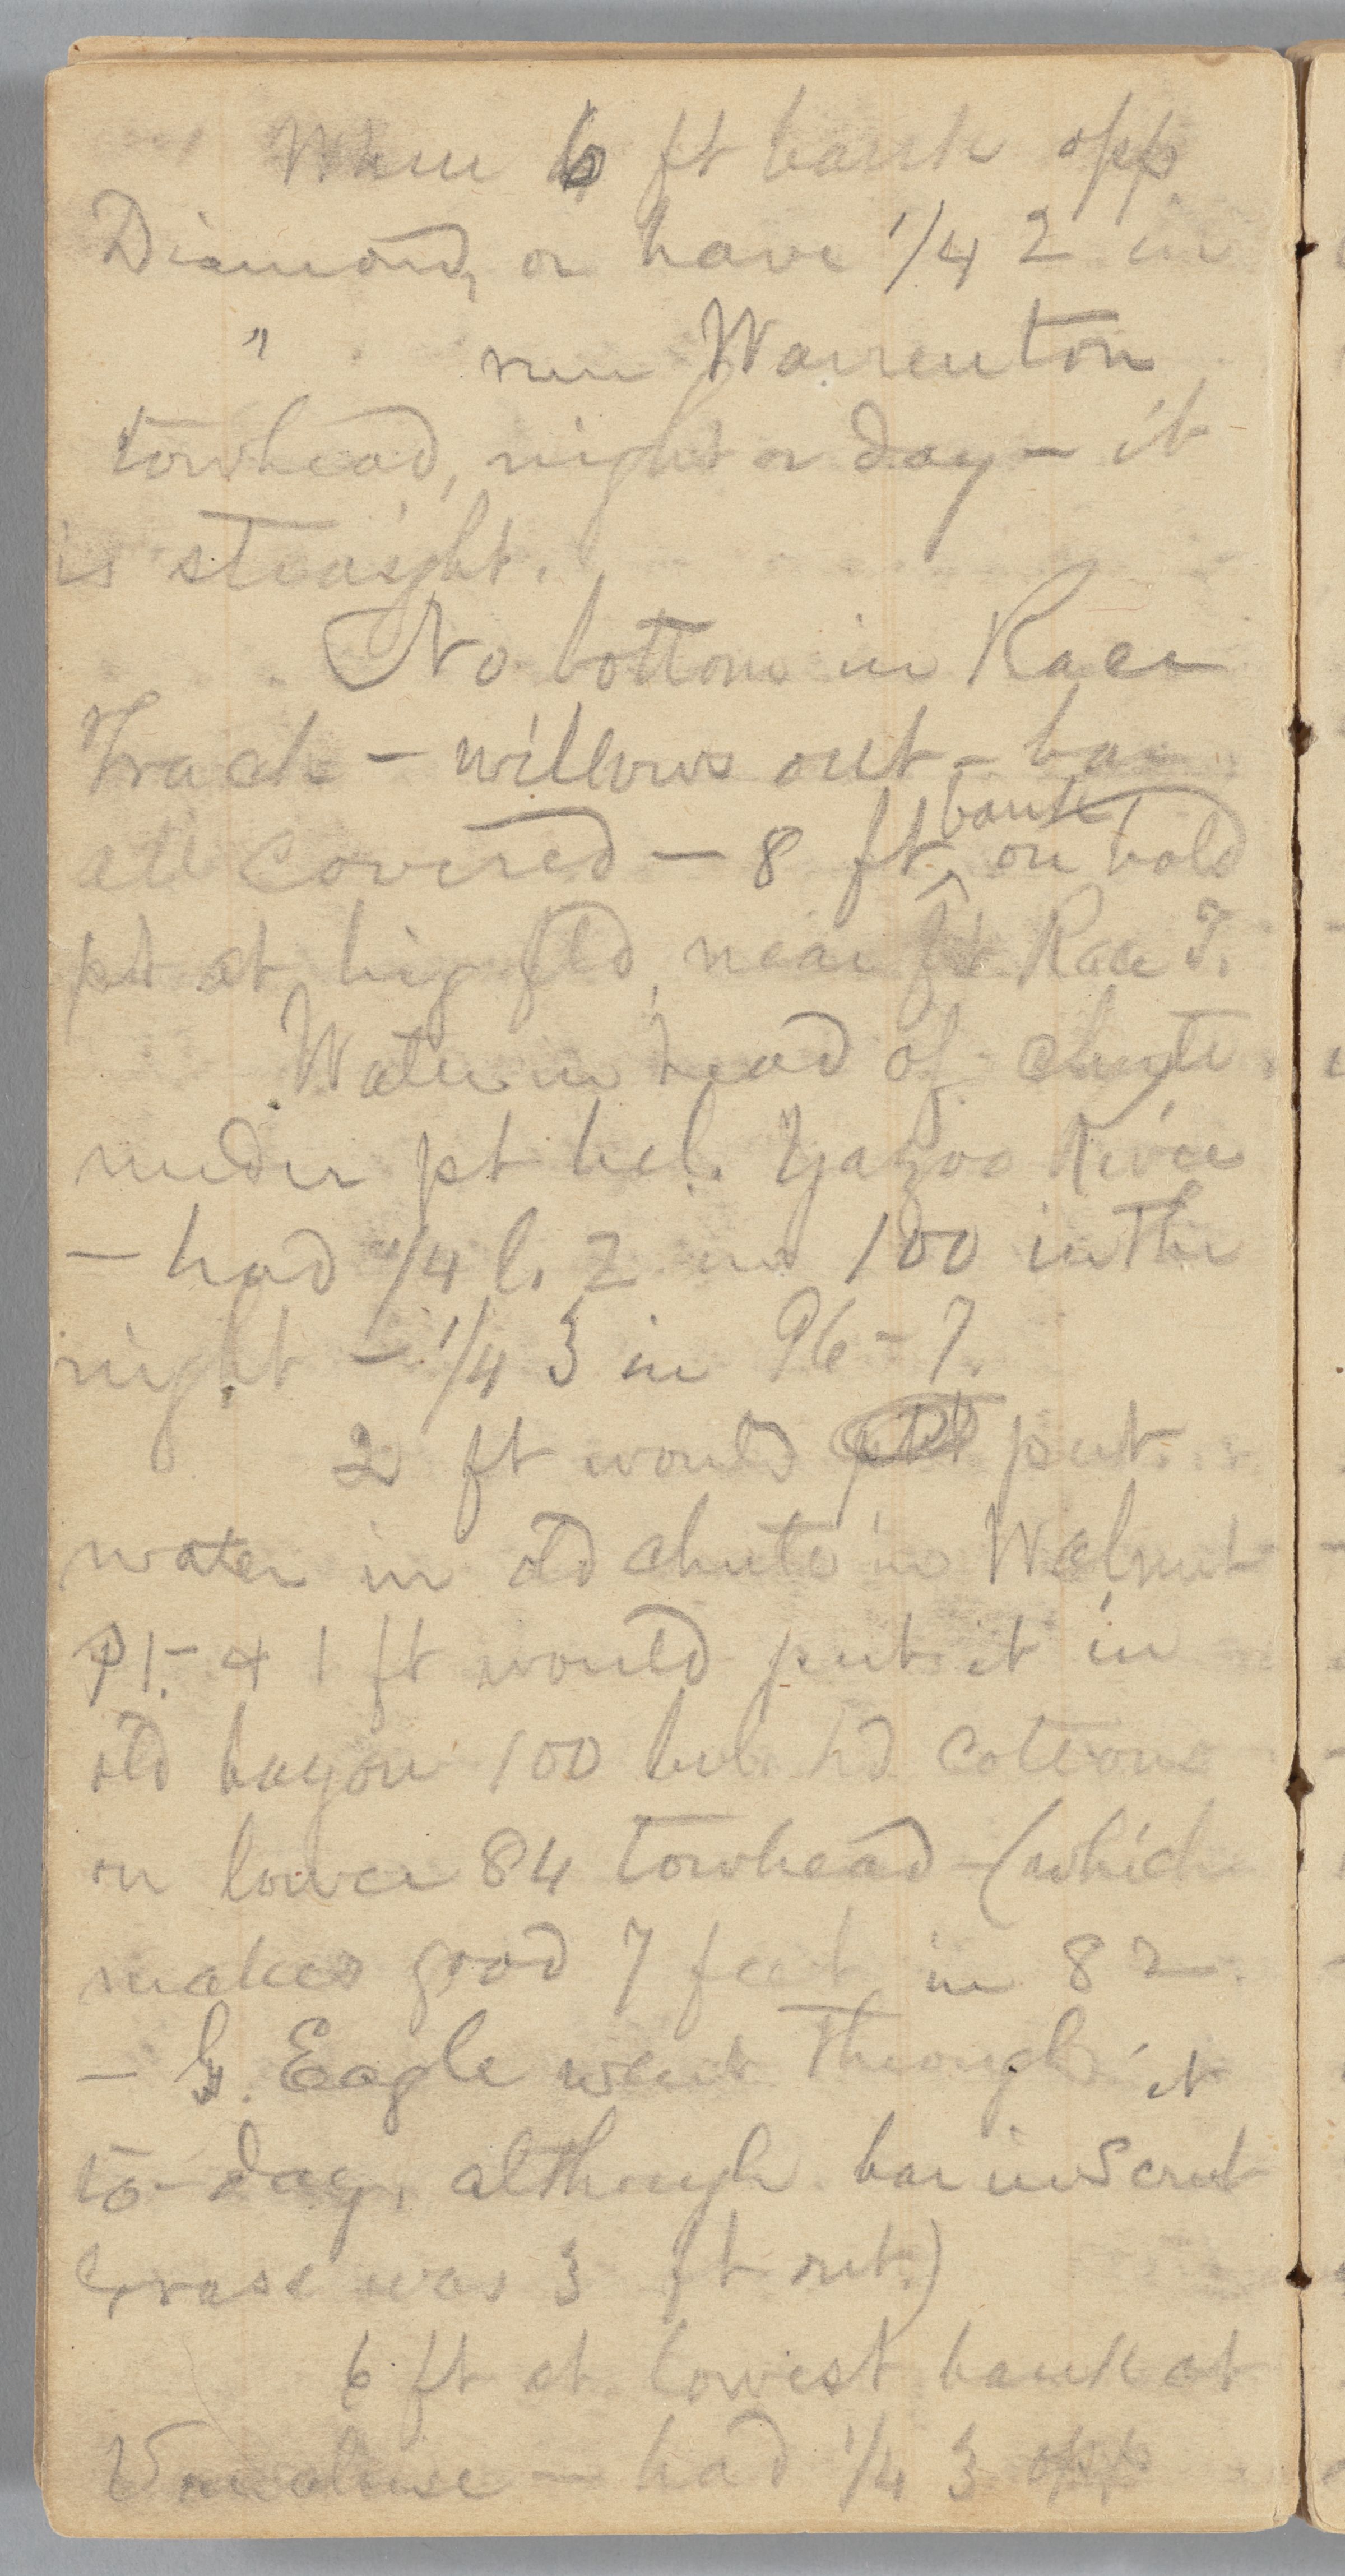 When 6 ft bank opp.
Diamond, or have 1/4 2 in
" run Warrenton
towhead, night or day — it
is straight.
No bottom in Race
Track — willows out — bar
all covered — 8 ft bank on bold
pt at big fld, near ft Race T.
Water in head of chute
under pt bel. Yazoo River
— had 1/4 l. 2 in 100 in the
night — 1/4 3 in 96-7.
2 ft would put
water in old chute in Walnut
Pt. — & 1 ft would put it in
old bayou 100 bel. hd cottons
on lower 84 towhead — (which
makes good 7 feet in 82.
— G. Eagle went through it
to-day, although bar in Scrub
Grass was 3 ft out.)
6 ft at lowest bank at
— had 1/4 3 opp